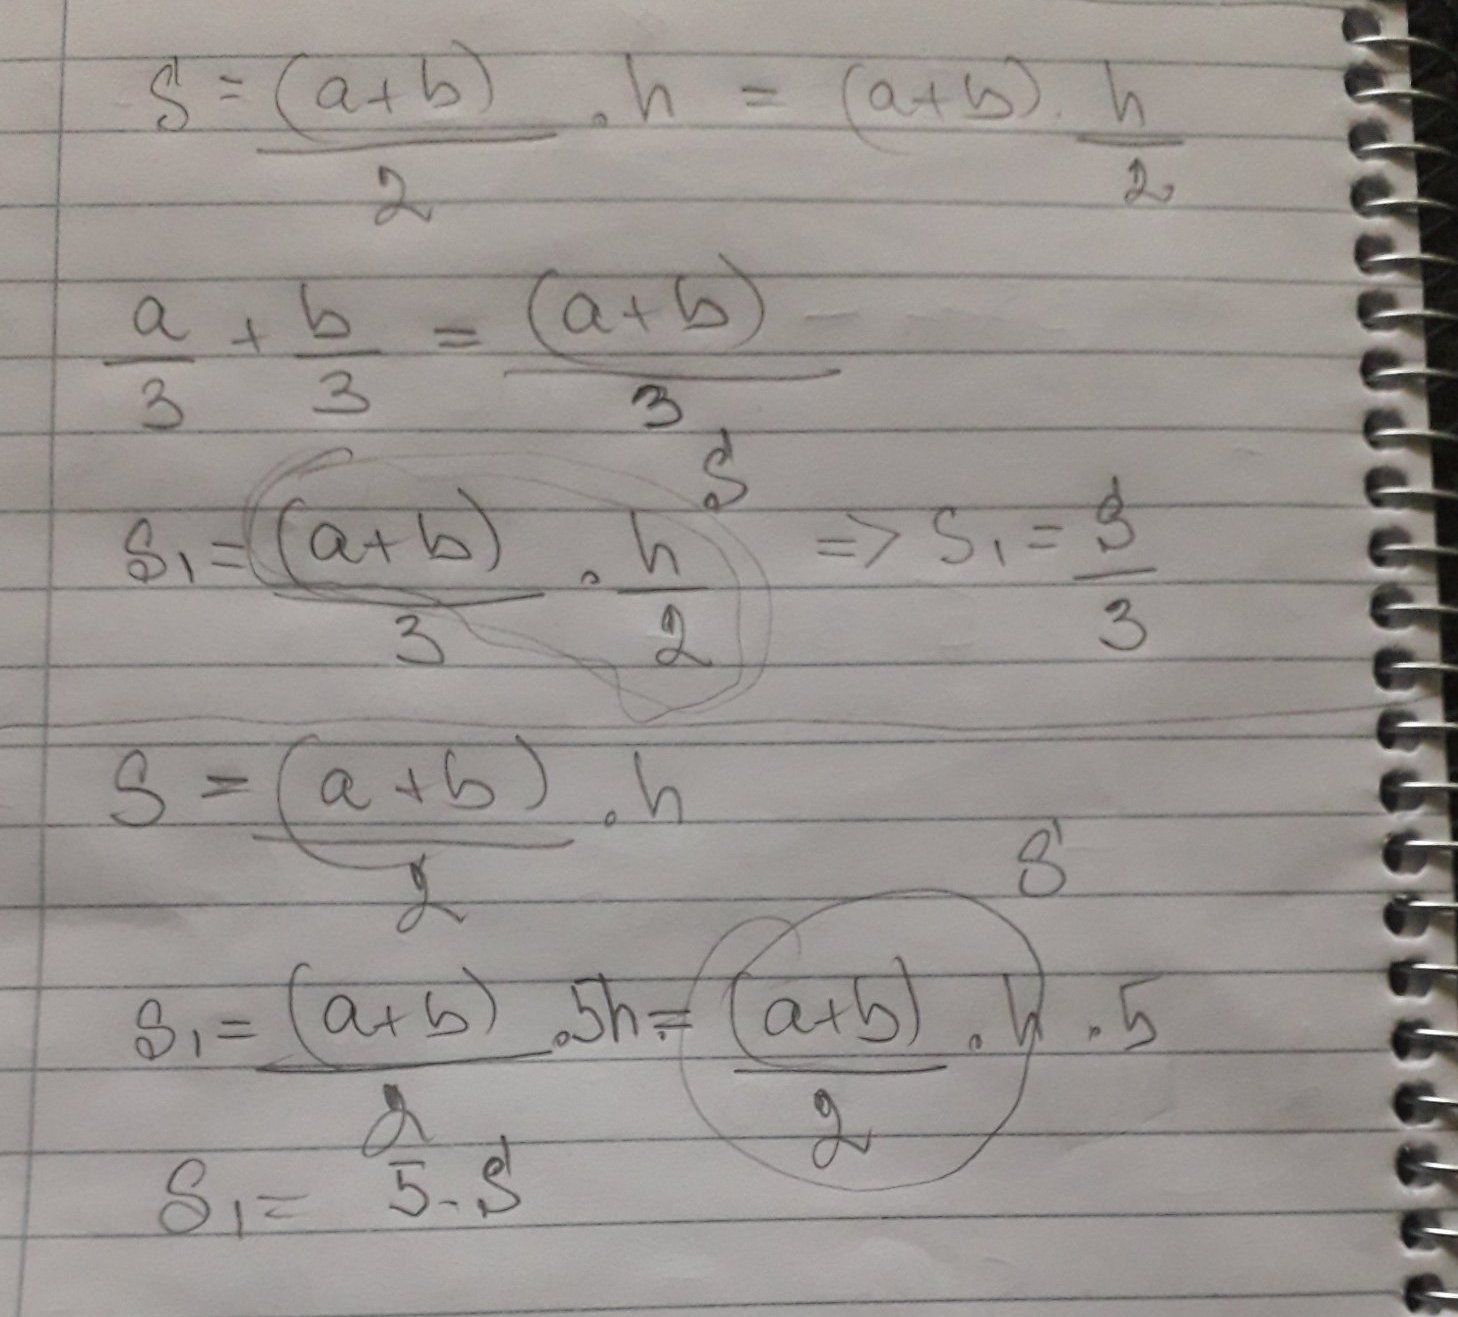 S = (a+b)/2 . h = (a+b) . h/2
a/3 + b/3 = (a+b)/3
S
S₁ = (a+b)/3 . h/2 => S₁ = S/3
S = (a+b)/2 . h
S
S₁ = (a+b)/2 .5h = (a+b)/2 . h . 5
S₁ = 5.S